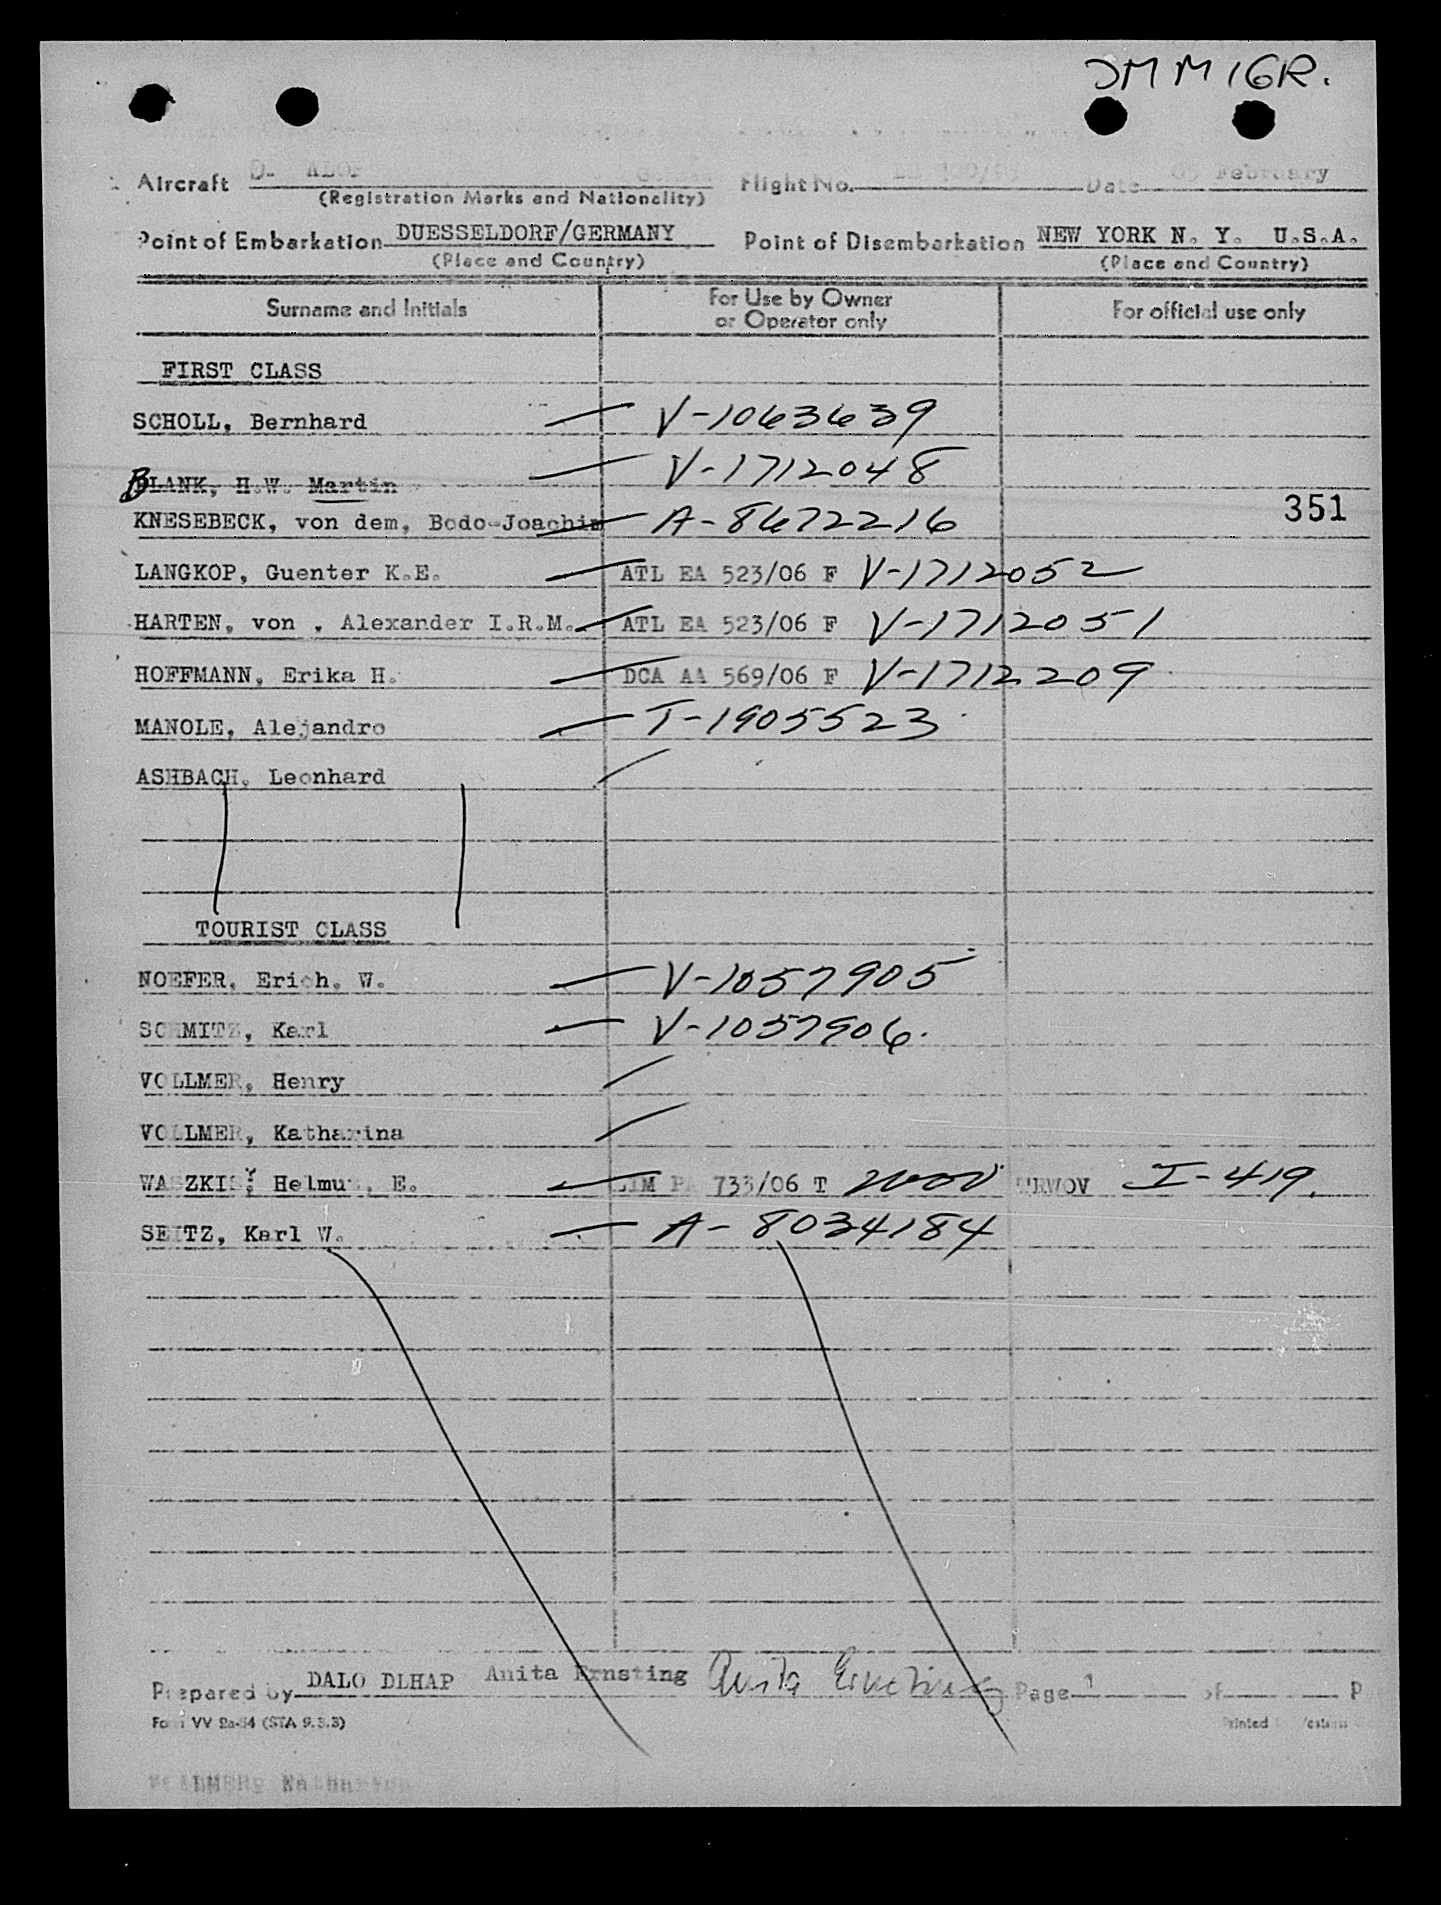 IMMIGR.
Aircraft D- ALOP Flight No. Date 05 February
(Registration Marks and Nationality)
Point of Embarkation DUESSELDORF/GERMANY Point of Disembarkation NEW YORK N. Y. U.S.A.
(Place and Country) (Place and Country)
Surname and Initials For Use by Owner or Operator only For official use only
FIRST CLASS
SCHOLL, Bernhard V-1063639
BLANK, H.W. Martin V-1712048
351
KNESEBECK, von dem, Bodo-Joachim A-8672216
LANGKOP, Guenter K.E. ATL EA 523/06 F V-1712052
HARTEN, von , Alexander I.R.M. ATL EA 523/06 F V-1712051
HOFFMANN, Erika H. DCA AA 569/06 F V-1712209
MANOLE, Alejandro T-1905523
ASHBACH, Leonhard
TOURIST CLASS
NOEFER, Erich. W. V-1057905
SCHMITZ, Karl V-1057906.
VOLLMER, Henry
VOLLMER, Katharina
WASZKIS, Helmut, E. LIM PA 733/06 T TRWOV I-419.
SEITZ, Karl W. A-8034184
Prepared by DALO DLHAP Anita Ernsting Anita Ernsting Page 1 of P
Form VV 2a-54 (STA 9.3.3) Printed
VOLLMER, Katharina